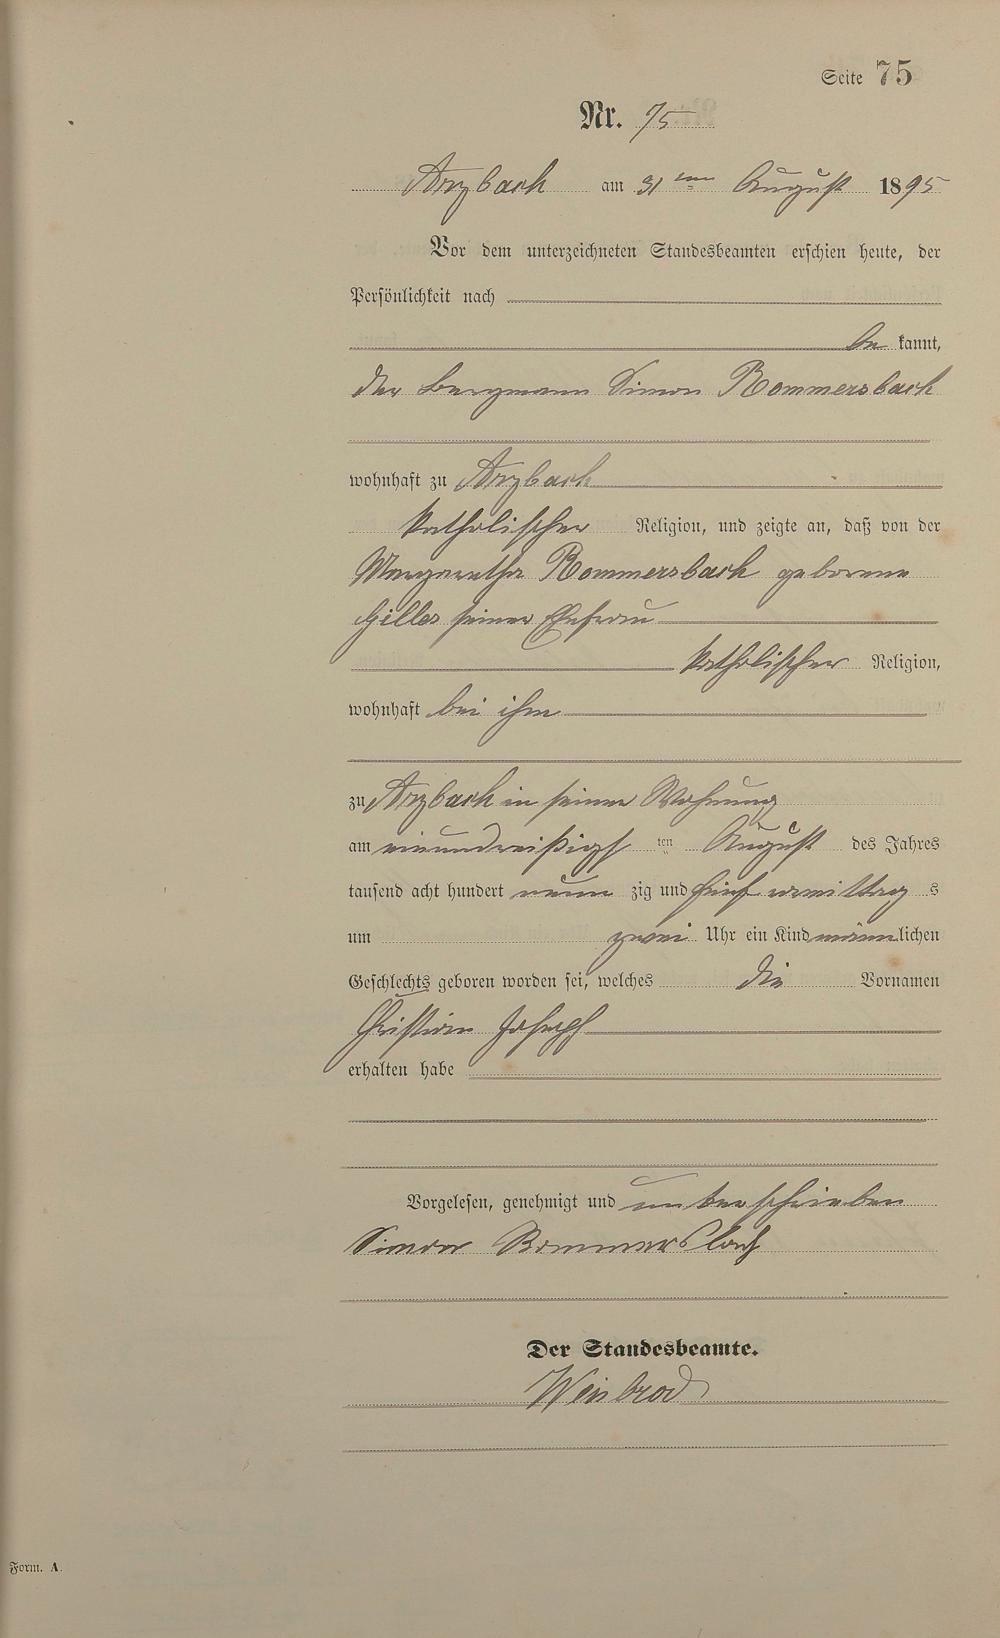 Seite 75
Nr. 75
Arzbach am 31ten August 1895
Vor dem unterzeichneten Standesbeamten erschien heute, der
Persönlichkeit nach
be kannt,
der Bergmann Simon Rommersbach
wohnhaft zu Arzbach
katholischer Religion, und zeigte an, daß von der
Margaretha Rommersbach geborene
Gilles seiner Ehefrau
katholischer Religion,
wohnhaft bei ihm
zu Arzbach in seiner Wohnung
am einunddreißigst ten August des Jahres
tausend acht hundert neun zig und fünf vormittag s
um zwei Uhr ein Kind männlichen
Geschlechts geboren worden sei, welches die Vornamen
Christian Joseph
erhalten habe
Vorgelesen, genehmigt und unterschrieben
Simon Rommersbach
Der Standesbeamte.
Weinbrod
Form. A.